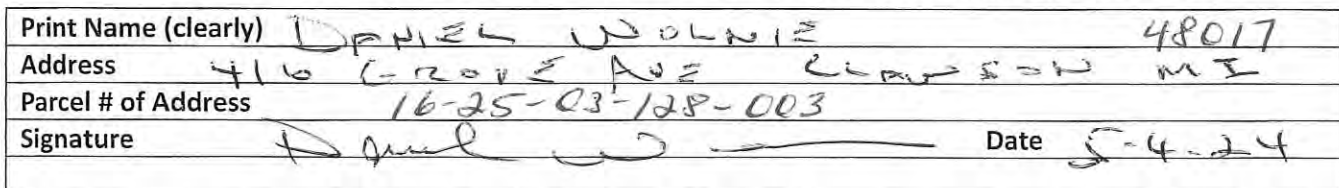 Print Name (clearly) DANIEL WOLNIE 48017
Address 416 GROVE AVE CLAWSON MI
Parcel # of Address 16-25-03-128-003
Signature Daniel W
Date 5-4-24